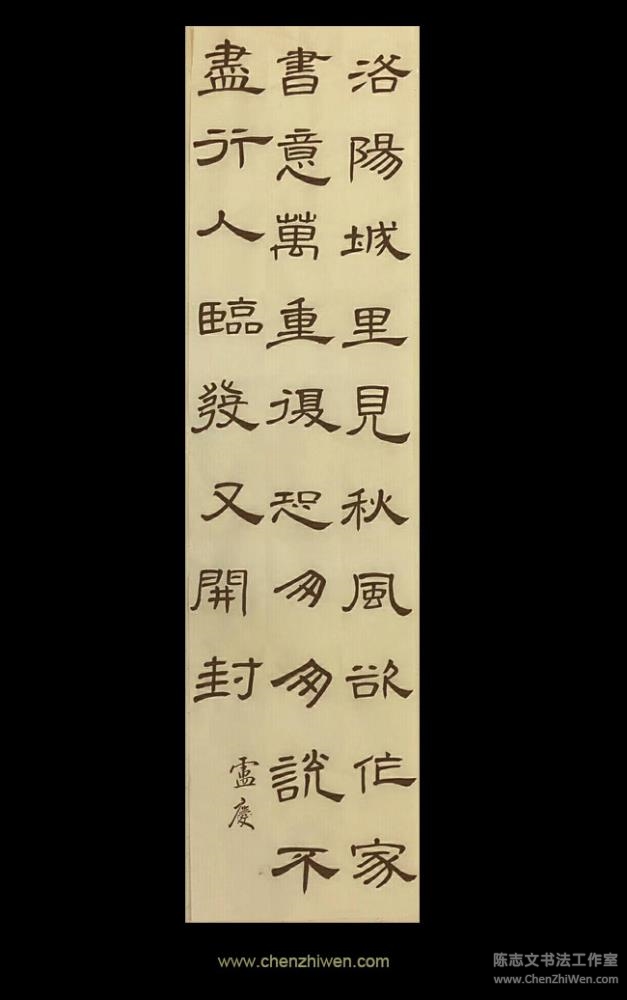 洛陽城里見秋風欲作家
書意萬重復恐匆匆説不
盡行人臨發又開封
盧慶
www.chenzhiwen.com
陈志文书法工作室
www.ChenZhiWen.com